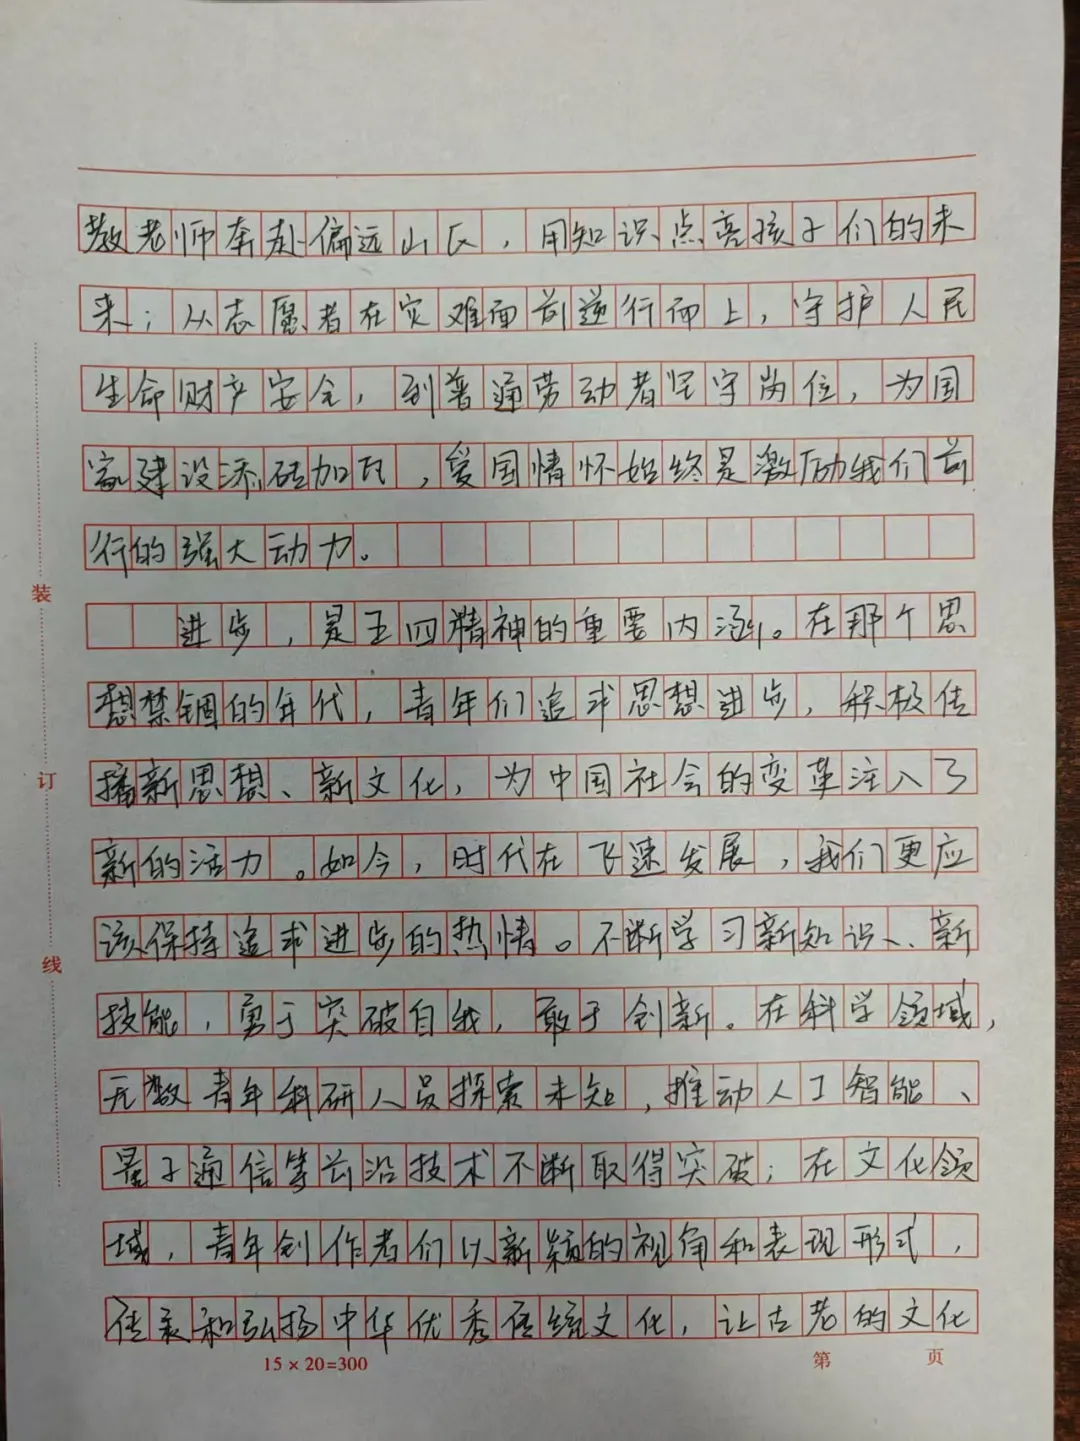 教老师奔赴偏远山区，用知识点亮孩子们的未
来；从志愿者在灾难面前逆行而上，守护人民
生命财产安全，到普通劳动者坚守岗位，为国
家建设添砖加瓦，爱国情怀始终是激励我们前
行的强大动力。
进步，是五四精神的重要内涵。在那个思
想禁锢的年代，青年们追求思想进步，积极传
播新思想、新文化，为中国社会的变革注入了
新的活力。如今，时代在飞速发展，我们更应
该保持追求进步的热情。不断学习新知识、新
技能，勇于突破自我，敢于创新。在科学领域，
无数青年科研人员探索未知，推动人工智能、
量子通信等前沿技术不断取得突破；在文化领
域，青年创作者们以新颖的视角和表现形式，
传承和弘扬中华优秀传统文化，让古老的文化
15×20=300 第 页
装
订
线